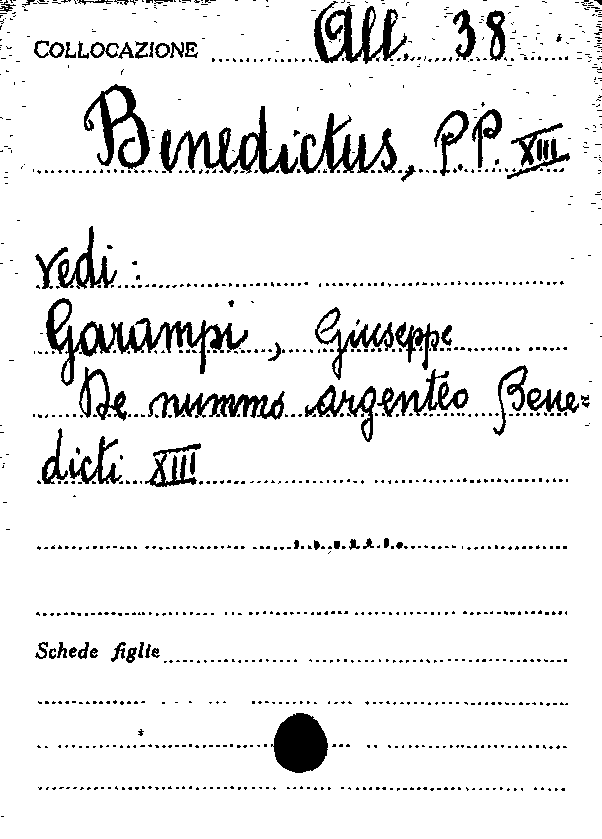 COLLOCAZIONE All. 38
Benedictus, P.P. XIII
vedi :
Garampi, Giuseppe
De nummo argenteo Bene=
dicti XIII
.......
Schede figlie